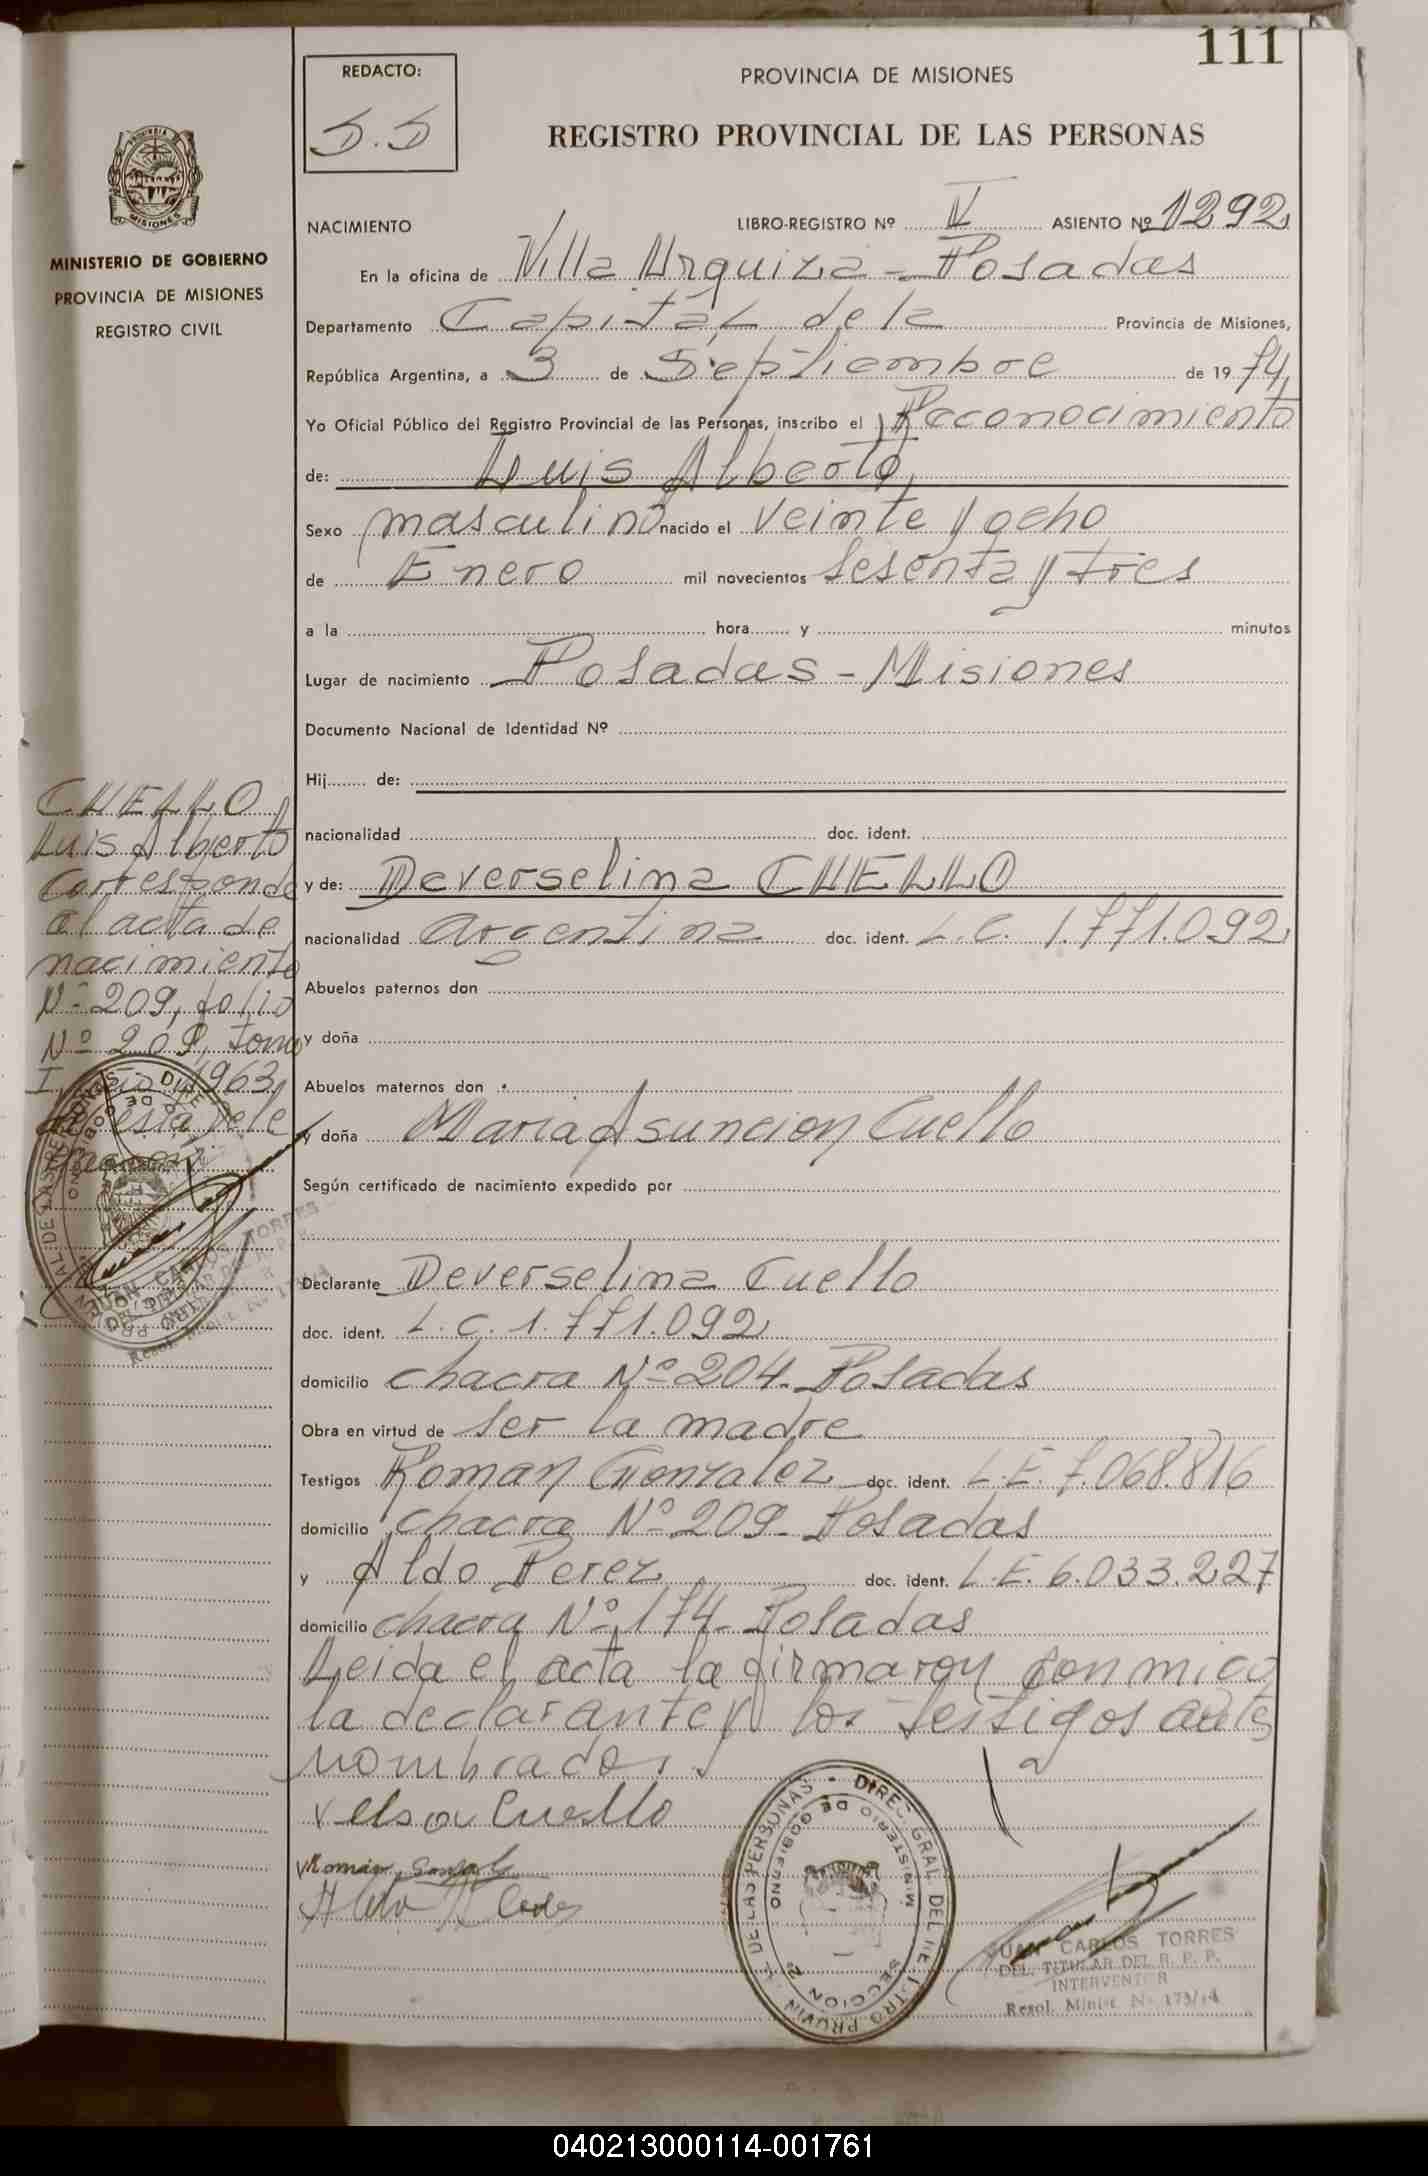 111
REDACTO:
S.S
PROVINCIA DE MISIONES
REGISTRO PROVINCIAL DE LAS PERSONAS
MINISTERIO DE GOBIERNO
PROVINCIA DE MISIONES
REGISTRO CIVIL
NACIMIENTO LIBRO-REGISTRO Nº V ASIENTO Nº 1292
En la oficina de Villa Urquiza - Posadas
Departamento Capital de la Provincia de Misiones,
República Argentina, a 3 de Septiembre de 1974,
Yo Oficial Público del Registro Provincial de las Personas, inscribo el Reconocimiento
de: Luis Alberto,
Sexo masculino nacido el veinte y ocho
de Enero mil novecientos sesenta y tres
a la hora y minutos
Lugar de nacimiento Posadas - Misiones
Documento Nacional de Identidad Nº
Hij de:
nacionalidad doc. ident.
y de: Deverselina CUELLO
nacionalidad argentina doc. ident. L.C. 1.771.092
Abuelos paternos don
y doña
Abuelos maternos don
y doña Maria Asuncion Cuello
Según certificado de nacimiento expedido por
Declarante Deverselina Cuello
doc. ident. L.C. 1.771.092
domicilio chacra Nº 204. Posadas
Obra en virtud de ser la madre
Testigos Roman Gonzalez doc. ident. L.E. 7.068.816
domicilio chacra Nº 209- Posadas
y Aldo Perez doc. ident. L.E. 6.033.227
domicilio chacra Nº 174- Posadas
Leida el acta la firmaron conmigo
la declarante y los testigos antes
nombrados.
CUELLO
Luis Alberto
Corresponde
al acta de
nacimiento
Nº 209, folio
Nº 209, tomo
I, año 1963
elsa Cuello
Román
DIREC. GRAL. DEL REGISTRO PROVINCIAL DE LAS PERSONAS
MINISTERIO DE GOBIERNO
SECCION 2ª
JUAN CARLOS TORRES
DEL. TITULAR DEL R. P. P.
INTERVENTOR
Resol. Minist. Nº 173/74
040213000114-001761